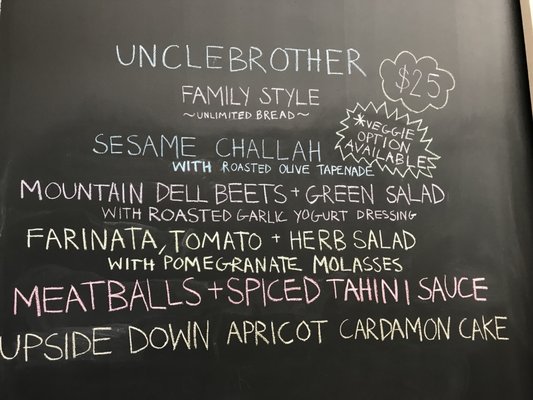 UNCLEBROTHER
$25
FAMILY STYLE
~UNLIMITED BREAD~
*VEGGIE
OPTION
AVAILABLE
SESAME CHALLAH
WITH ROASTED OLIVE TAPENADE
MOUNTAIN DELL BEETS + GREEN SALAD
WITH ROASTED GARLIC YOGURT DRESSING
FARINATA, TOMATO + HERB SALAD
WITH POMEGRANATE MOLASSES
MEATBALLS + SPICED TAHINI SAUCE
UPSIDE DOWN APRICOT CARDAMON CAKE